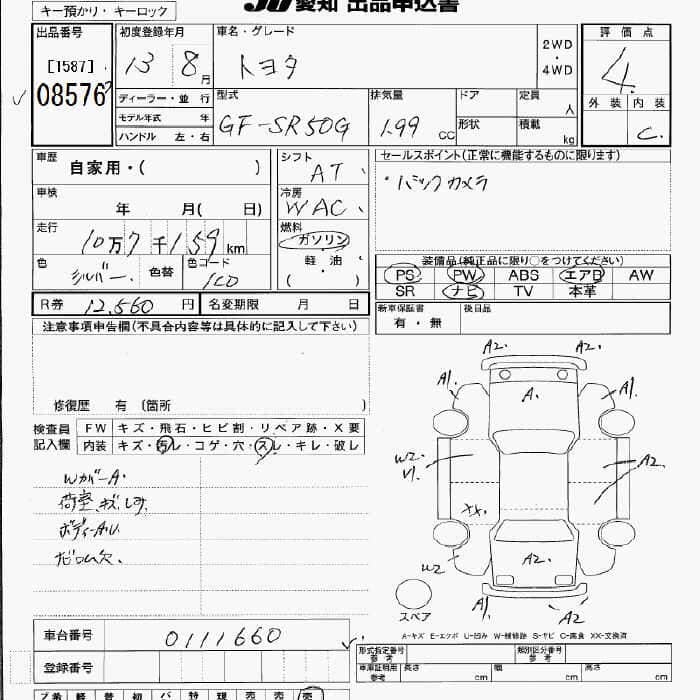 キー預かり・キーロック
愛知 出品申込書
出品番号
[1587]
08576
初度登録年月
13 8月
車名・グレード
トヨタ
2WD
・
4WD
評価点
4
外装 内装
C
ディーラー・並行
モデル年式 年
ハンドル 左・右
型式
GF-SR50G
排気量
1.99 CC
ドア
形状
定員 人
積載 kg
車歴 自家用・( )
車検 年 月( 日)
走行 10万7千159km
色 シルバー 色替 色コード 1C0
シフト AT
冷房 WAC
燃料
ガソリン
軽・油
( )
セールスポイント(正常に機能するものに限ります)
・バックカメラ
装備品(純正品に限り○をつけてください)
PS PW ABS エアB AW
SR ナビ TV 本革
新車保証書 有・無
後日品
R券 12,560円 名変期限 月 日
注意事項申告欄(不具合内容等は具体的に記入して下さい)
修復歴 有(箇所 )
検査員記入欄
FW キズ・飛石・ヒビ割・リペア跡・X要
内装 キズ・汚レ・コゲ・穴・スレ・キレ・破レ
WガバーA.
荷室、キズ
ボディーAU
欠
A2. A2.
A1. A1.
A.
W2. U1.
A2.
XX.
W2
A2.
A1 A2
スペア
A-キズ E-エクボ U-凹み W-補修跡 S-サビ C-腐食 XX-交換済
車台番号 0111660
登録番号
形式指定番号 参考
類別区分番号 参考
車庫証明用 参考 長さ cm 幅 cm 高さ cm